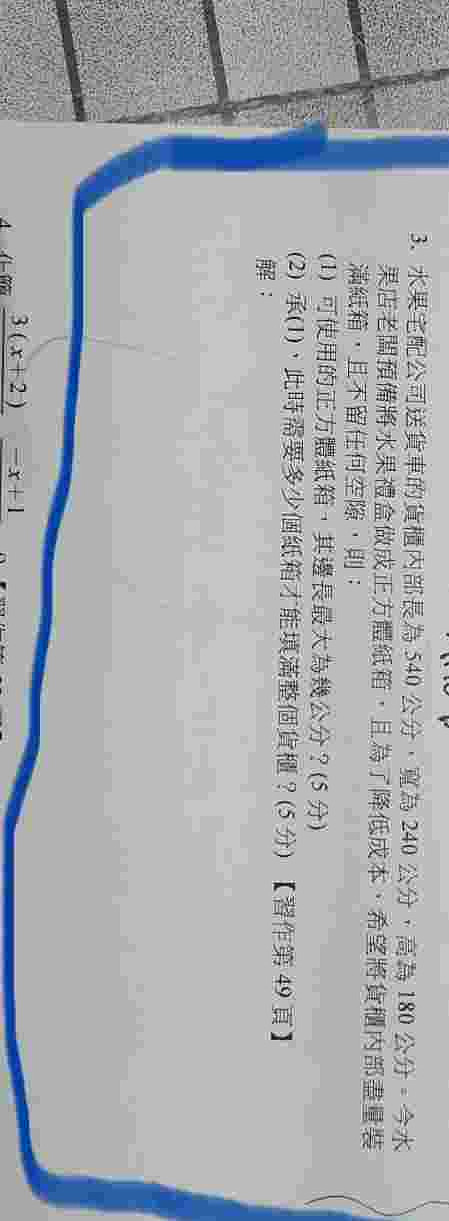 3. 水果宅配公司送貨車的貨櫃內部長為 540 公分，寬為 240 公分，高為 180 公分。今水
果店老闆預備將水果禮盒做成正方體紙箱，且為了降低成本，希望將貨櫃內部盡量裝
滿紙箱，且不留任何空隙，則：
(1) 可使用的正方體紙箱，其邊長最大為幾公分？(5 分)
(2) 承(1)，此時需要多少個紙箱才能填滿整個貨櫃？(5 分) 【習作第 49 頁】
解：
4. 化簡 3(x+2) -x+1